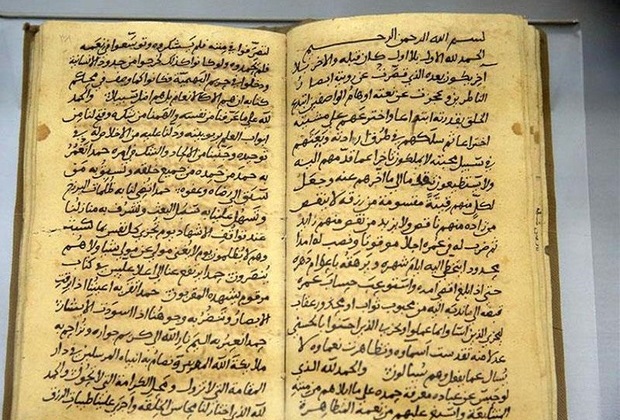 بسم الله الرحمن الرحيم
الحمد لله الاول بلا اول كان قبله والاخر بلا
اخر يكون بعده الذي قصرت عن رويته ابصار
الناظرين وعجزت عن نعته اوهام الواصفين ابتدع
الخلق بقدرته ابتداعا واخترعهم على مشيته
اختراعا ثم سلكهم طريق ارادته وبعثهم
في سبيل محبته لا يملكون تاخيرا عما قدمهم اليه
ولا يستطيعون الى ما اخرهم عنه وجعل
لكل منهم مقسومة من رزقه لا ينقص
من زاده منهم ناقص ولا يزيد من نقص منهم زايد
ثم ضرب له في عمره اجلا موقوتا ونصب له امدا
محدودا يتخطا اليه ايام شهره ويرهقه باعوام دهره
حتى اذا بلغ اقصى امده واستوعب حساب عمره
قبضه الى ما ندبه اليه من ثوابه او محذور عقابه
ليجزي الذين اساوا بما عملوا ويجزي الذين احسنوا بالحسنى
عدلا منه تقدست اسماوه وتظاهرت نعماوه لا
يسال عما يفعل وهم يسالون والحمد لله الذي
لو حبس عن عباده معرفة حمده على ما ابلاهم من مننه
المتتابعة واسبغ عليهم من نعمه المتظاهرة
لتصرفوا في مننه فلم يشكروه وتوسعوا في نعمه
فلم يحمدوه ولو كانوا كذلك لخرجوا من حدود الانسانية
ودخلوا في حريم البهيمية فكانوا كما وصف في محكم
كتابه ان هم الا كالانعام بل هم اضل سبيلا والحمد
لله على ما عرفنا من نفسه والهمنا من شكره وفتح لنا من
ابواب العلم بربوبيته ودلنا عليه من الاخلاص له في
توحيده وجنبنا من الالحاد والشك في امره حمدا نعمر
به حمد من حمده من جميع خلقه ونسبق به من
سبق الى رضاه وعفوه حمدا تضي لنا به ظلمات البرزخ
ويسهل علينا به سبيل البعث وتشرف به منازلنا
عند مواقف الاشهاد يوم تجزى كل نفس بما كسبت
وهم لا يظلمون يوم لا يغني مولى عن مولى شيا ولا هم
ينصرون حمدا يرتفع منا الى اعلا عليين في كتاب
مرقوم يشهده المقربون حمدا تقر به اعيننا اذا برقت
الابصار وتبيض به وجوهنا اذا اسودت الابشار
حمدا نعتق به من نار الله الى كريم جواره ونزاحم به
ملايكة الله المقربين ونضام به انبياه المرسلين في دار
المقامة التي لا تزول ومحل الكرامة التي لا تحول والحمد
لله الذي اختار لنا محاسن الخلق واجرى علينا طيبات الرزق